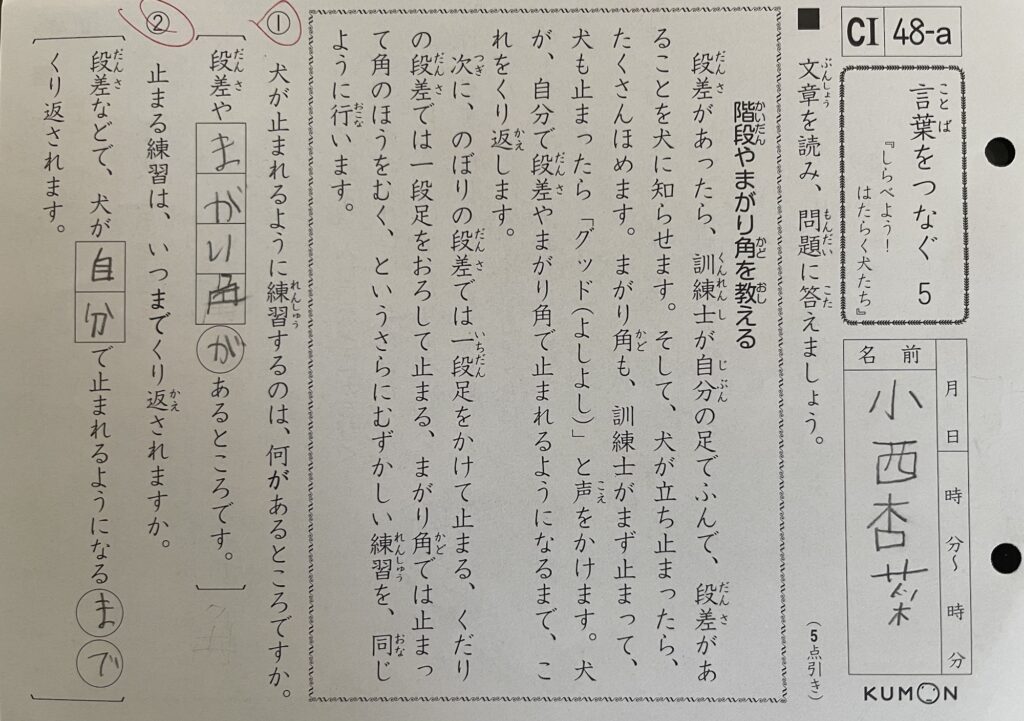 CI 48-a
言葉をつなぐ 5
ことば
『しらべよう！
はたらく犬たち』
月 日 時 分～ 時 分
名前
小西杏菜
KUMON
(5点引き)
■ 文章を読み、問題に答えましょう。
ぶんしょう もんだい こた
階段やまがり角を教える
かいだん かど おし
段差があったら、訓練士が自分の足でふんで、段差があ
だんさ くんれんし じぶん だんさ
ることを犬に知らせます。そして、犬が立ち止まったら、
たくさんほめます。まがり角も、訓練士がまず止まって、
かど
犬も止まったら「グッド(よしよし)」と声をかけます。犬
こえ
が、自分で段差やまがり角で止まれるようになるまで、こ
だんさ
れをくり返します。
かえ
次に、のぼりの段差では一段足をかけて止まる、くだり
つぎ だんさ いちだん
の段差では一段足をおろして止まる、まがり角では止まっ
だんさ かど
て角のほうをむく、というさらにむずかしい練習を、同じ
れんしゅう おな
ように行います。
おこな
① 犬が止まれるように練習するのは、何があるところですか。
れんしゅう
段差やまがい角があるところです。
だんさ
② 止まる練習は、いつまでくり返されますか。
かえ
段差などで、犬が自分で止まれるようになるまで
だんさ
くり返されます。
かえ